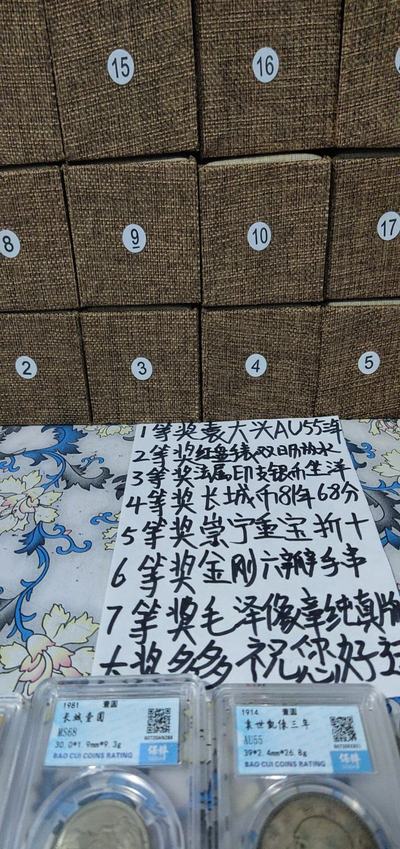 15
16
8
9
10
17
2
3
4
5
1等奖袁大头AU55三年
2等奖红盘手表双日历防水
3等奖法属印支银币坐洋
4等奖长城币81年68分
5等奖崇宁重宝折十
6等奖金刚六瓣手串
7等奖毛泽像章纯真版
大奖多多祝您好运
1981 壹圆
长城壹圆
MS68
30.0*1.9mm*9.3g
BAO CUI COINS RATING
1914 壹圆
袁世凯像三年
AU55
39*2.4mm*26.8g
BAO CUI COINS RATING